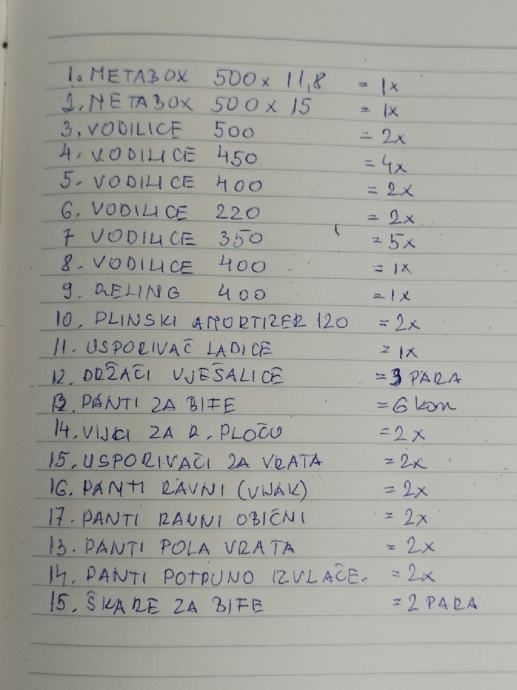 1. METABOX 500 x 11,8 = 1x
2. METABOX 500 x 15 = 1x
3, VODILICE 500 = 2x
4. VODILICE 450 = 4x
5. VODILICE 400 = 2x
6. VODILICE 220 = 2x
7 VODILICE 350 = 5x
8. VODILICE 400 = 1x
9. RELING 400 = 1x
10, PLINSKI AMORTIZER 120 = 2x
11. USPORIVAČ LADICE = 1x
12. DRŽAČI VJEŠALICE = 3 PARA
13. PANTI ZA BIFE = 6 kom
14. VIJCI ZA R. PLOČU = 2x
15, USPORIVAČI ZA VRATA = 2x
16. PANTI RAVNI (VIJAK) = 2x
17. PANTI RAVNI OBIČNI = 2x
13. PANTI POLA VRATA = 2x
14. PANTI POTPUNO IZVLAČE. = 2x
15. ŠKARE ZA BIFE = 2 PARA